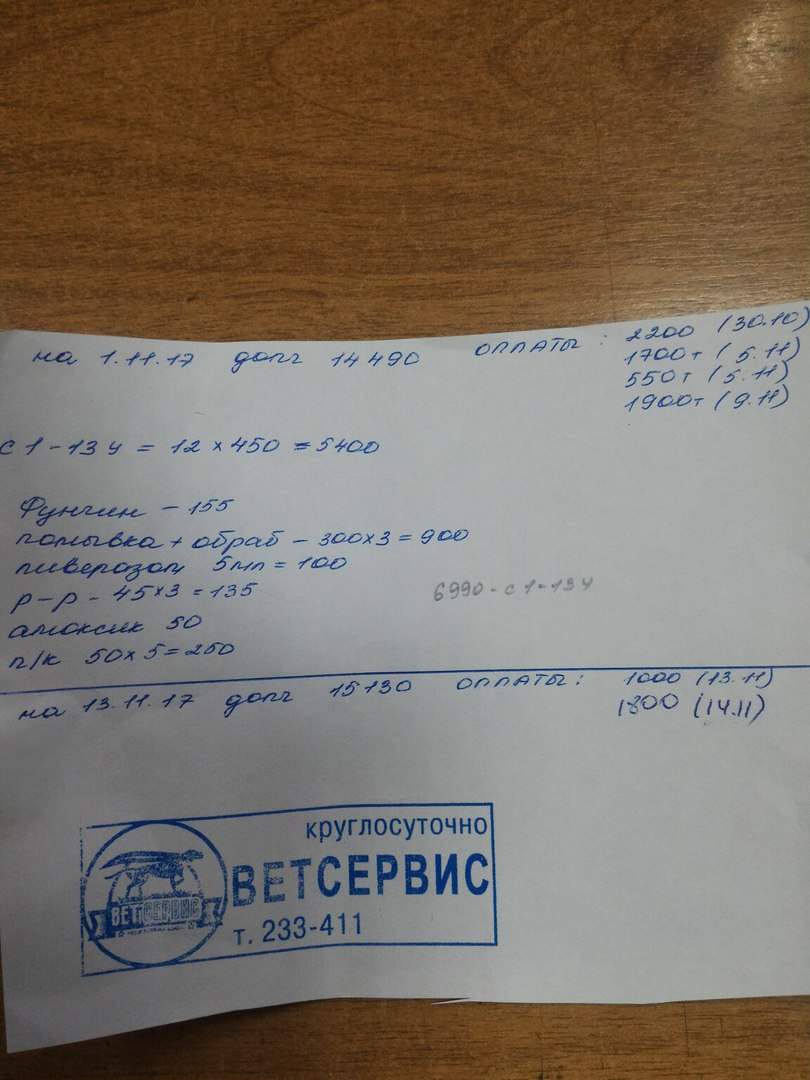 на 1.11.17 долг 14490 ОПЛАТЫ: 2200 (30.10)
1700т (5.11)
550т (5.11)
1900т (9.11)
с 1-13ч = 12 × 450 = 5400
Фунгин - 155
помывка + обраб - 300×3 = 900
5мл = 100
р-р - 45×3 = 135
6990 - с 1-13ч
амоксик 50
п/к 50×5=250
на 13.11.17 долг 15130 ОПЛАТЫ: 1000 (13.11)
1800 (14.11)
круглосуточно
ВЕТСЕРВИС
т. 233-411
ВЕТСЕРВИС